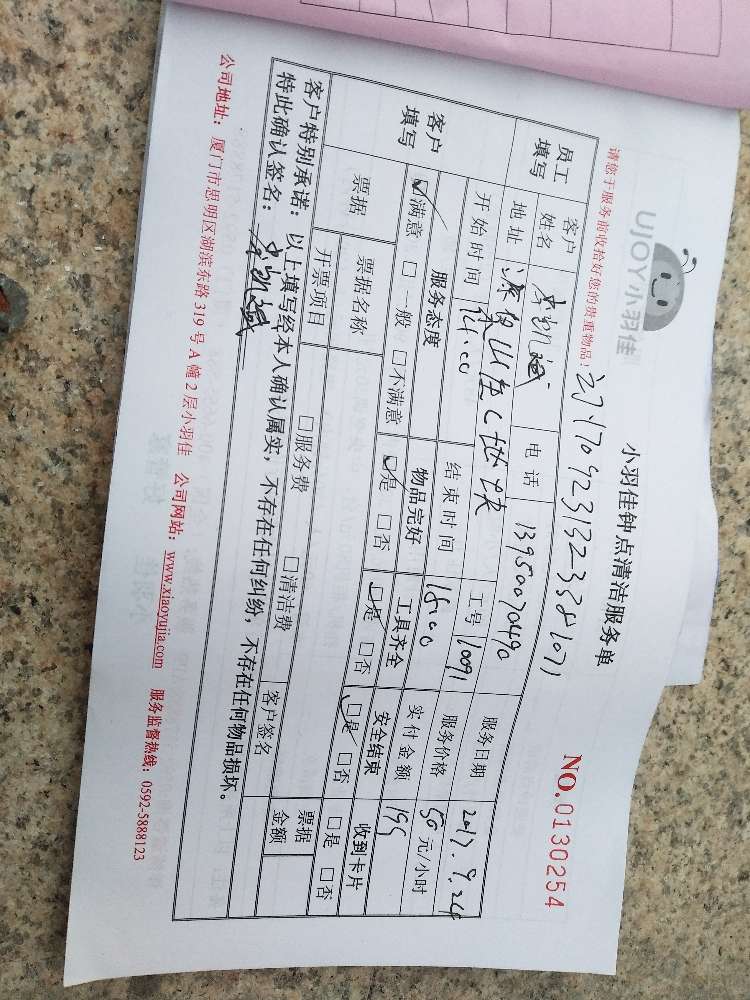 UJOY小羽佳
小羽佳钟点清洁服务单
NO.0130254
请您于服务前收拾好您的贵重物品!
员工填写 客户姓名 电话 13950070490 工号 10091 服务日期 2017.9.24
地址 服务价格 50 元/小时
客户填写 开始时间 14:00 结束时间 18:00 实付金额 195
服务态度 物品完好 工具齐全 安全结束 收到卡片
☑满意 □一般 □不满意 ☑是 □否 ☑是 □否 ☑是 □否 □是 □否
票据 票据名称 票据金额
开票项目 □服务费 □清洁费 客户签名
客户特别承诺:以上填写经本人确认属实,不存在任何纠纷,不存在任何物品损坏。
特此确认签名:
公司地址:厦门市思明区湖滨东路319号A幢2层小羽佳 公司网站:www.xiaoyujia.com 服务监督热线:0592-5888123